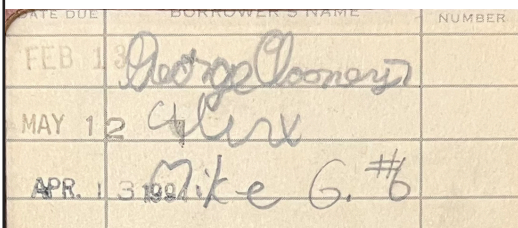 DATE DUE BORROWER'S NAME NUMBER
FEB 13 George Clooney
MAY 12
APR. 13 1994 Mike G. #6